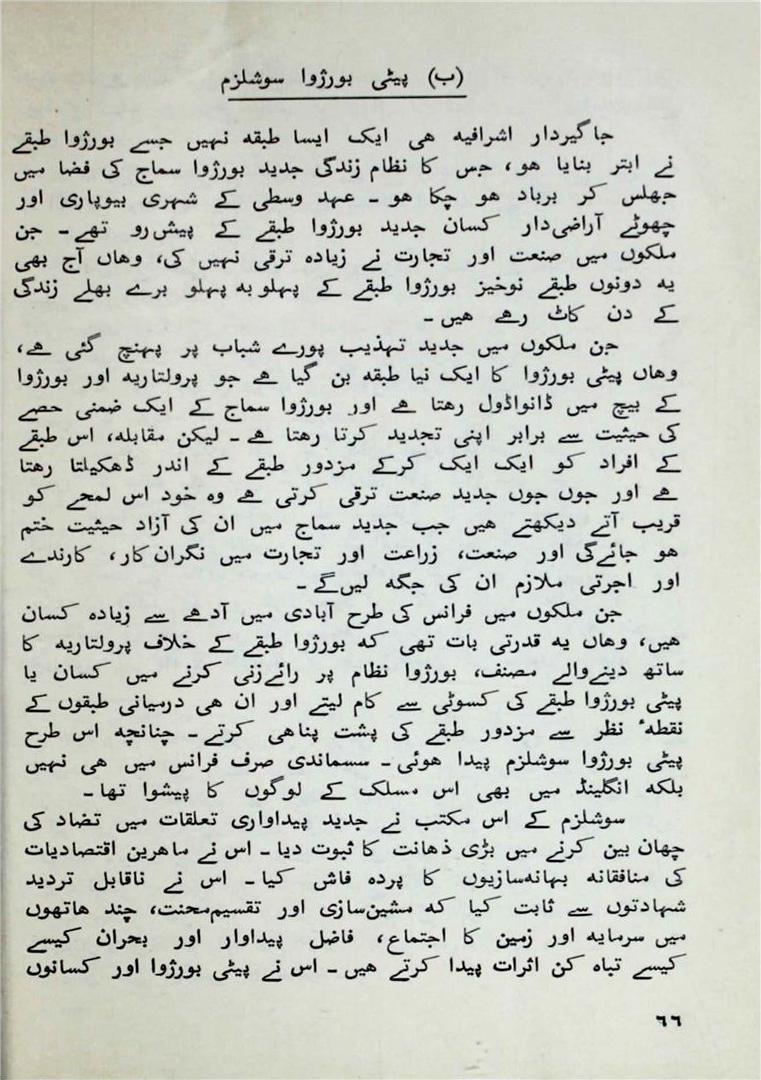 (ب) پیٹی بورژوا سوشلزم
جاگیردار اشرافیہ ھی ایک ایسا طبقہ نہیں جسے بورژوا طبقے
نے ابتر بنایا ھو، جس کا نظام زندگی جدید بورژوا سماج کی فضا میں
جھلس کر برباد ھو چکا ھو ۔ عہد وسطی کے شہری بیوپاری اور
چھوٹے آراضی‌دار کسان جدید بورژوا طبقے کے پیش‌رو تھے ۔ جن
ملکوں میں صنعت اور تجارت نے زیادہ ترقی نہیں کی، وھاں آج بھی
یہ دونوں طبقے نوخیز بورژوا طبقے کے پہلو بہ پہلو برے بھلے زندگی
کے دن کاٹ رھے ھیں ۔
جن ملکوں میں جدید تہذیب پورے شباب پر پہنچ گئی ھے،
وھاں پیٹی بورژوا کا ایک نیا طبقہ بن گیا ھے جو پرولتاریہ اور بورژوا
کے بیچ میں ڈانواڈول رھتا ھے اور بورژوا سماج کے ایک ضمنی حصے
کی حیثیت سے برابر اپنی تجدید کرتا رھتا ھے ۔ لیکن مقابلہ، اس طبقے
کے افراد کو ایک ایک کرکے مزدور طبقے کے اندر ڈھکیلتا رھتا
ھے اور جوں جوں جدید صنعت ترقی کرتی ھے وہ خود اس لمحے کو
قریب آتے دیکھتے ھیں جب جدید سماج میں ان کی آزاد حیثیت ختم
ھو جائے‌گی اور صنعت، زراعت اور تجارت میں نگران‌کار، کارندے
اور اجرتی ملازم ان کی جگہ لیں‌گے ۔
جن ملکوں میں فرانس کی طرح آبادی میں آدھے سے زیادہ کسان
ھیں، وھاں یہ قدرتی بات تھی کہ بورژوا طبقے کے خلاف پرولتاریہ کا
ساتھ دینےوالے مصنف، بورژوا نظام پر رائے‌زنی کرنے میں کسان یا
پیٹی بورژوا طبقے کی کسوٹی سے کام لیتے اور ان ھی درمیانی طبقوں کے
نقطہٴ نظر سے مزدور طبقے کی پشت پناھی کرتے ۔ چنانچہ اس طرح
پیٹی بورژوا سوشلزم پیدا ھوئی ۔ سسماندی صرف فرانس میں ھی نہیں
بلکہ انگلینڈ میں بھی اس مسلک کے لوگوں کا پیشوا تھا ۔
سوشلزم کے اس مکتب نے جدید پیداواری تعلقات میں تضاد کی
چھان بین کرنے میں بڑی ذھانت کا ثبوت دیا ۔ اس نے ماھرین اقتصادیات
کی منافقانہ بہانہ‌سازیوں کا پردہ فاش کیا ۔ اس نے ناقابل تردید
شہادتوں سے ثابت کیا کہ مشین‌سازی اور تقسیم‌محنت، چند ھاتھوں
میں سرمایہ اور زمین کا اجتماع، فاضل پیداوار اور بحران کیسے
کیسے تباہ کن اثرات پیدا کرتے ھیں ۔ اس نے پیٹی بورژوا اور کسانوں
٦٦